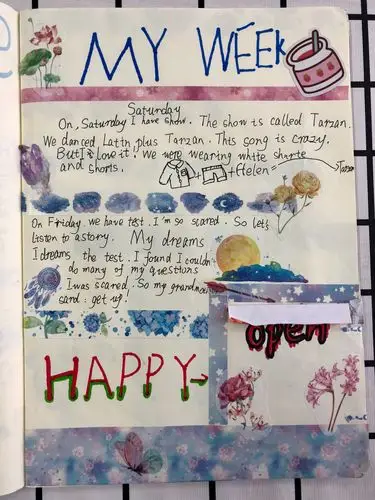 MY WEEK
Saturday
On, Saturday I have show. The show is called Tarzan.
We danced Latin plus Tarzan. This song is crazy.
But I love it! We were wearing white shirts
and shorts. + + Helen = Tarzan
On Friday we have test. I'm so scared. So let's
listen to a story. My dreams
I dreams, the test. I found I couldn't
do many of my questions
I was scared. So my grandma
said. get up!
open
HAPPY→